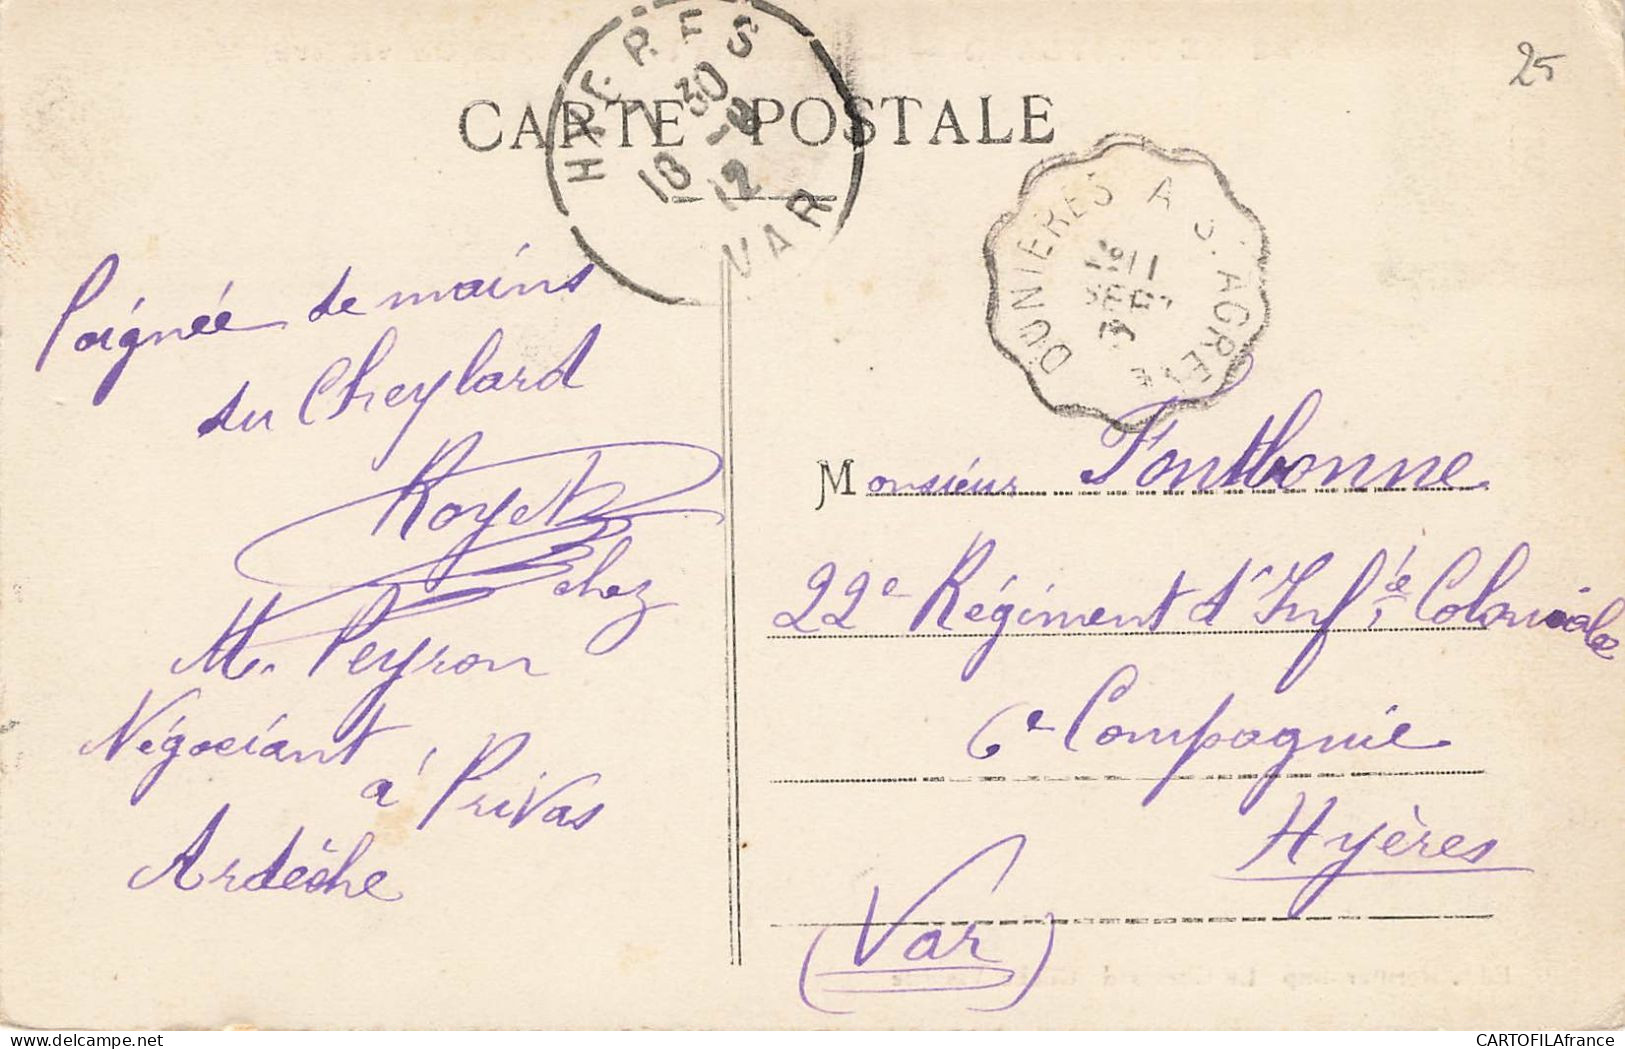 25
CARTE POSTALE
HYERES
7 30
18 -2
12
VAR
DUNIERES A S. AGREVE
Poignée de mains
du Cheylard
Royet
chez
M. Peyron
Négociant
à Privas
Ardèche
Monsieur Fontbonne
22e Régiment d'Inf.ie Coloniale
6e Compagnie
Hyères
(Var)
CARTOFILAfrance